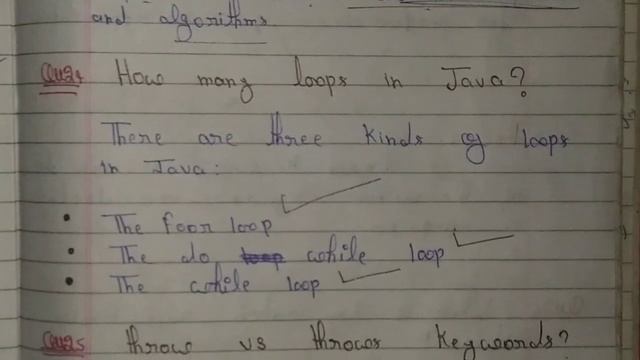 and algorithms
Ques4 How many loops in Java?
There are three kinds of loops
in Java:
• The foor loop
• The do while loop
• The while loop
Ques5 throw vs throws keywords?